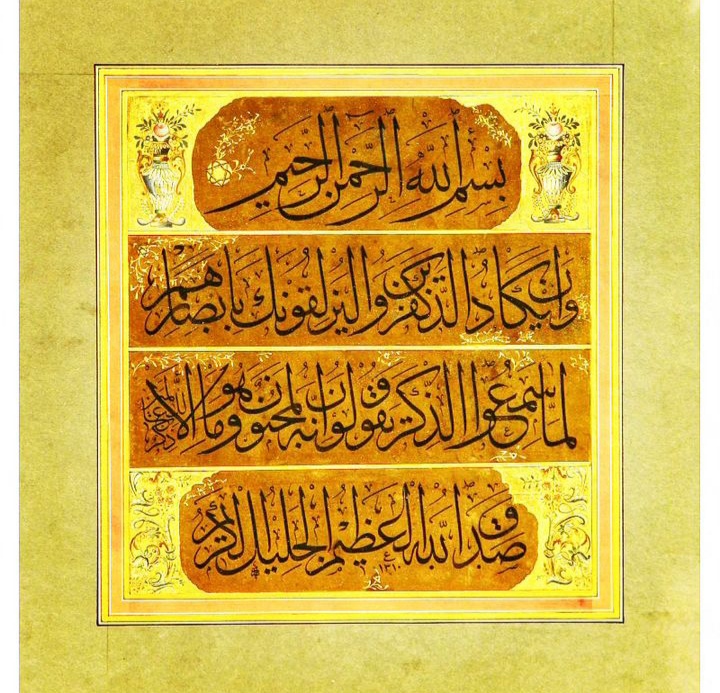 بِسْمِ اللهِ الرَّحْمٰنِ الرَّحِيمِ
وَاِنْ يَكَادُ الَّذِينَ كَفَرُوا لَيُزْلِقُونَكَ بِاَبْصَارِهِمْ
لَمَّا سَمِعُوا الذِّكْرَ وَيَقُولُونَ اِنَّهُ لَمَجْنُونٌ وَمَا هُوَ اِلَّا ذِكْرٌ لِلْعَالَمِينَ
صَدَقَ اللهُ الْعَظِيمُ الْجَلِيلُ الْكَرِيمُ
١٣١٠